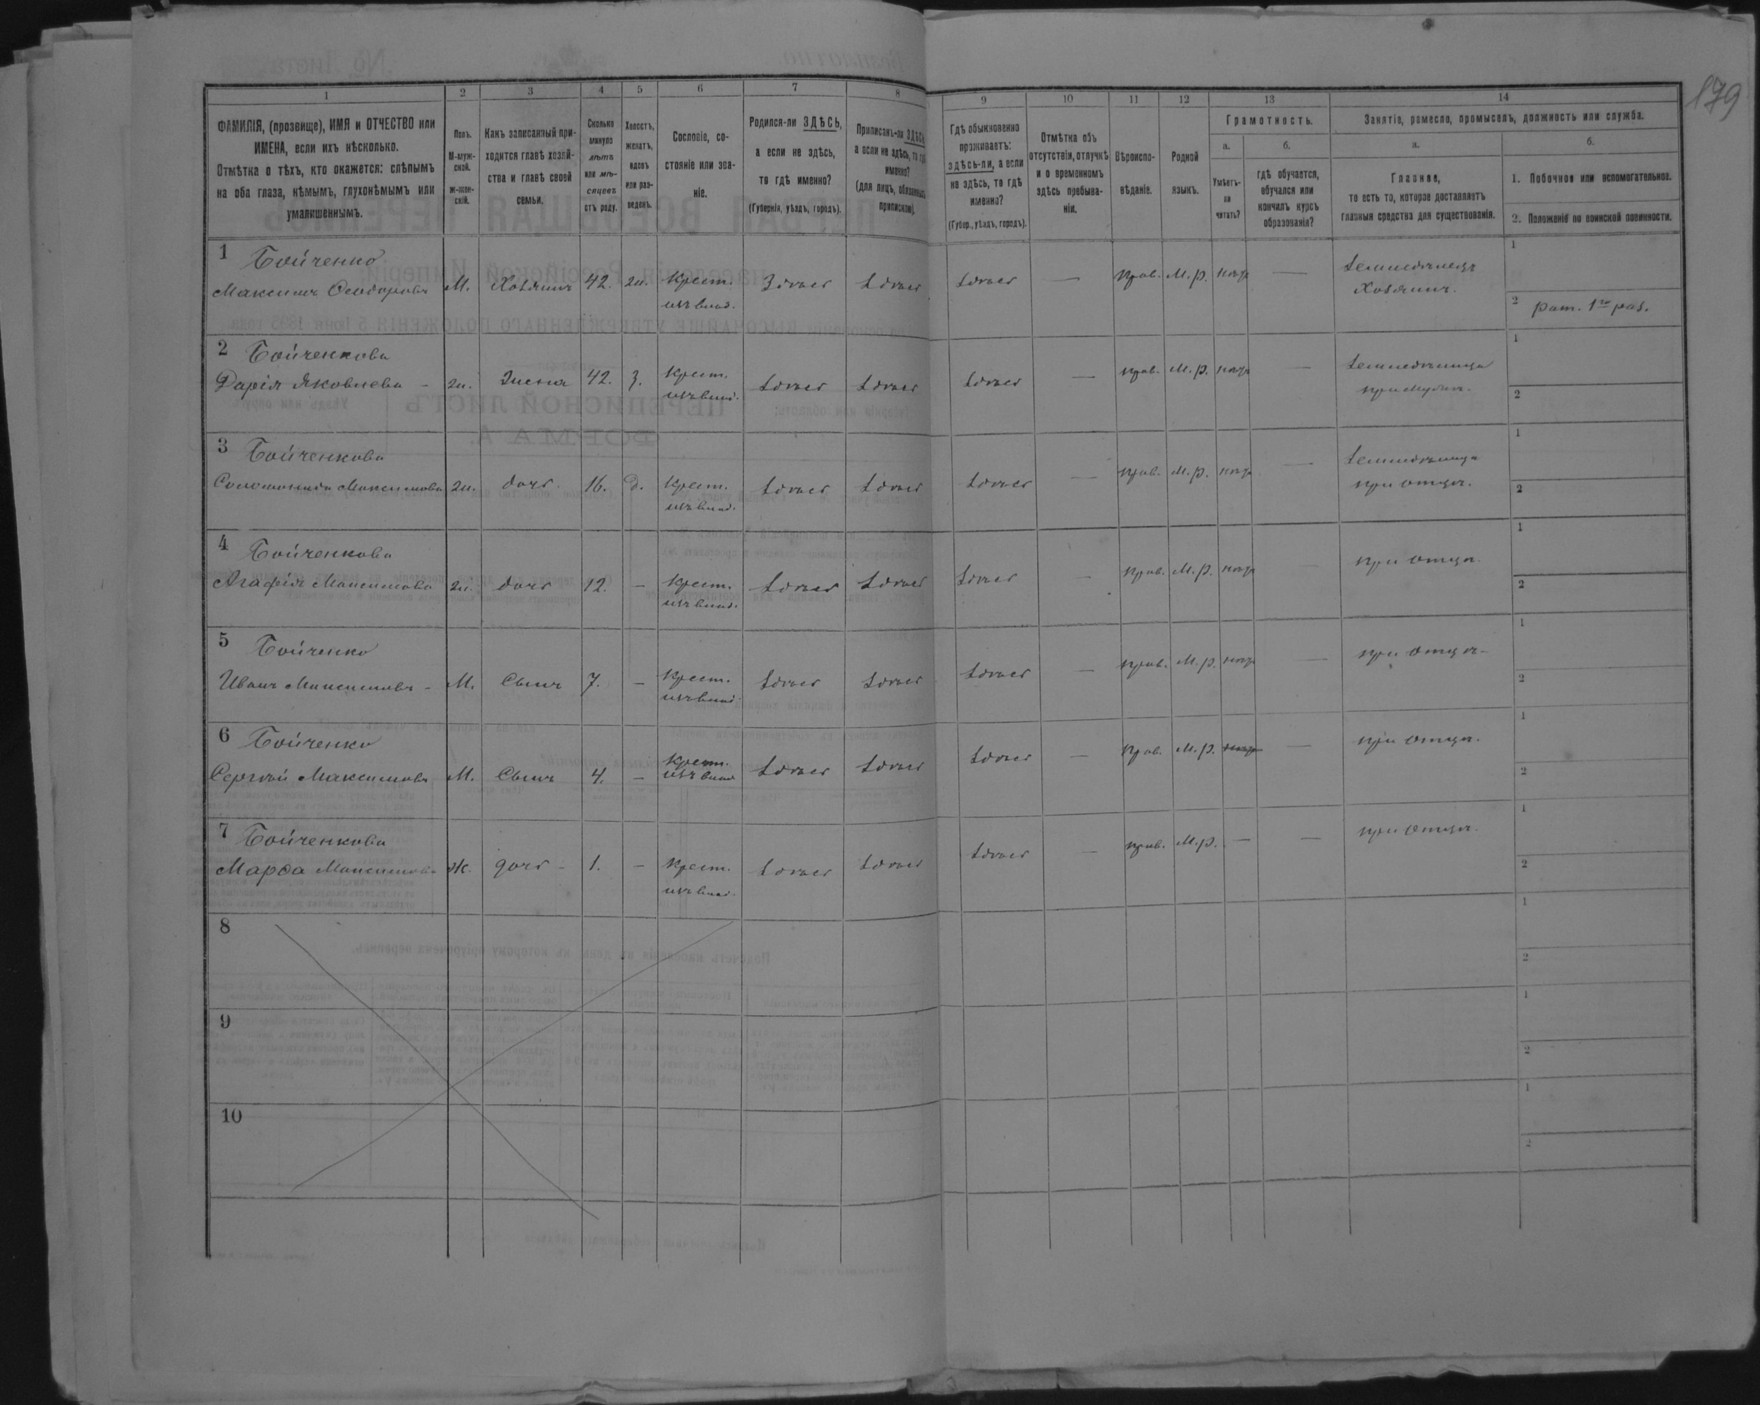 179
1 2 3 4 5 6 7 8 9 10 11 12 13 14
ФАМИЛІЯ, (прозвище), ИМЯ и ОТЧЕСТВО или
ИМЕНА, если ихъ нѣсколько.
Отмѣтка о тѣхъ, кто окажется: слѣпымъ
на оба глаза, нѣмымъ, глухонѣмымъ или
умалишеннымъ.
Полъ.
М-муж-
ской.
ж-жен-
скій.
Какъ записанный при-
ходится главѣ хозяй-
ства и главѣ своей
семьи.
Сколько
минуло
лѣтъ
или мѣ-
сяцевъ
отъ роду.
Холостъ,
женатъ,
вдовъ
или раз-
веденъ.
Сословіе, со-
стояніе или зва-
ніе.
Родился-ли ЗДѢСЬ,
а если не здѣсь,
то гдѣ именно?
(Губернія, уѣздъ, городъ).
Приписанъ-ли ЗДѢСЬ,
а если не здѣсь, то гдѣ
именно?
(для лицъ, обязанныхъ
припиской).
Гдѣ обыкновенно
проживаетъ:
здѣсь-ли, а если
не здѣсь, то гдѣ
именно?
(Губер., уѣздъ, городъ).
Отмѣтка объ
отсутствіи, отлучкѣ
и о временномъ
здѣсь пребыва-
ніи.
Вѣроиспо-
вѣданіе.
Родной
языкъ.
Грамотность.
а.
Умѣетъ-
ли
читать?
б.
гдѣ обучается,
обучался или
кончилъ курсъ
образованія?
Занятіе, ремесло, промыселъ, должность или служба.
а.
Главное,
то есть то, которое доставляетъ
главныя средства для существованія.
б.
1. Побочное или вспомогательное.
2. Положеніе по воинской повинности.
1 Бойченко
Максимъ Ѳеодоровъ М. Хозяинъ 42. Крест. Здѣсь здѣсь здѣсь — прав. М.р. — Хозяинъ.
1
2 рат. 1го раз.
2 Бойченкова
Дарія Яковлева – Жена 42. З. Крест. здѣсь здѣсь здѣсь — прав. М.р. — при мужѣ.
1
2
3 Бойченкова
Соломонида Максимова дочь 16. Д. Крест. здѣсь здѣсь здѣсь — прав. М.р. — при отцѣ.
1
2
4 Бойченкова
Агафія Максимова дочь 12. – Крест. здѣсь здѣсь здѣсь — прав. М.р. — при отцѣ.
1
2
5 Бойченко
Иванъ Максимовъ – М. Сынъ 7. – Крест. здѣсь здѣсь здѣсь — прав. М.р. — при отцѣ –
1
2
6 Бойченко
Сергѣй Максимовъ М. Сынъ 4. – Крест. здѣсь здѣсь здѣсь — прав. М.р. — при отцѣ.
1
2
7 Бойченкова
Марѳа Максимова Ж. дочь – 1. – Крест. здѣсь здѣсь здѣсь — прав. М.р. – — при отцѣ.
1
2
8
1
2
9
1
2
10
1
2